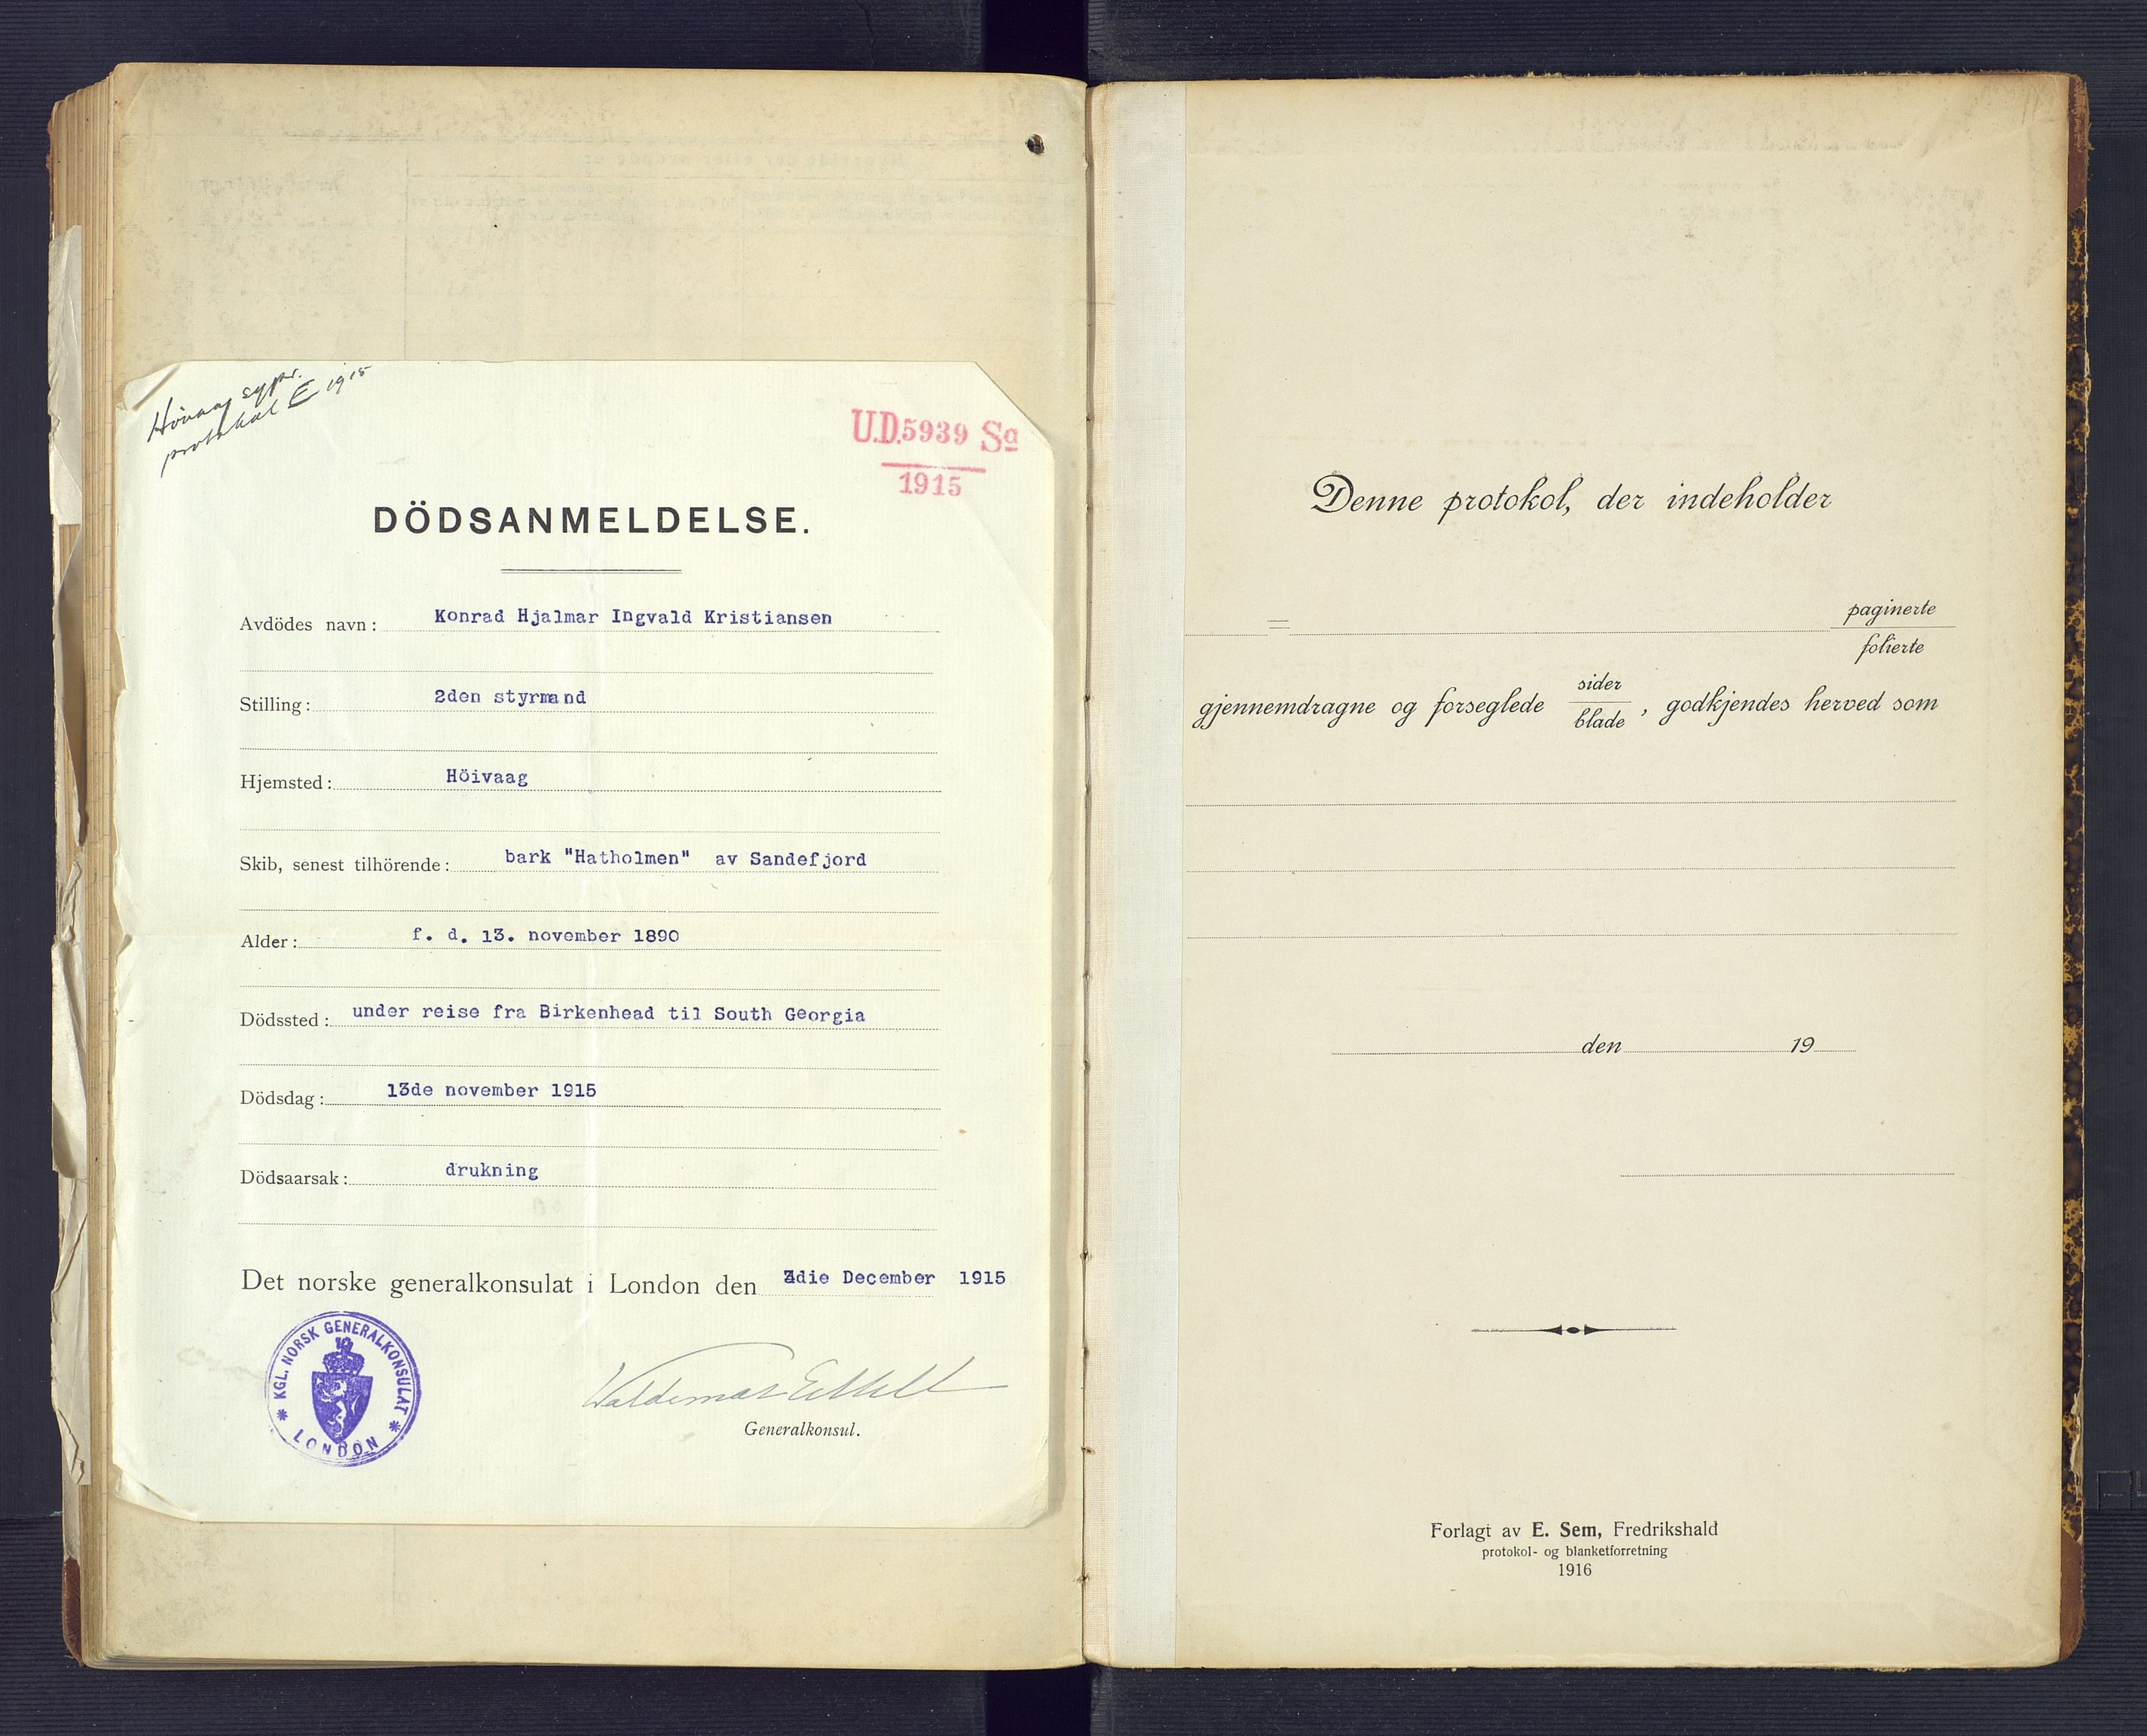 Hövaag
protokol E 1915
U.D.5939 Sa
1915
DÖDSANMELDELSE.
Avdödes navn: Konrad Hjalmar Ingvald Kristiansen
Stilling: 2den styrmand
Hjemsted: Höivaag
Skib, senest tilhörende: bark "Hatholmen" av Sandefjord
Alder: f. d. 13. november 1890
Dödssted: under reise fra Birkenhead til South Georgia
Dödsdag: 13de november 1915
Dödsaarsak: drukning
Det norske generalkonsulat i London den December 1915
KGL. NORSK GENERALKONSULAT
* LONDON *
Waldemar
Generalkonsul.
Denne protokol, der indeholder
= paginerte
folierte
gjennemdragne og forseglede sider
blade, godkjendes herved som
den 19
Forlagt av E. Sem, Fredrikshald
protokol- og blanketforretning
1916